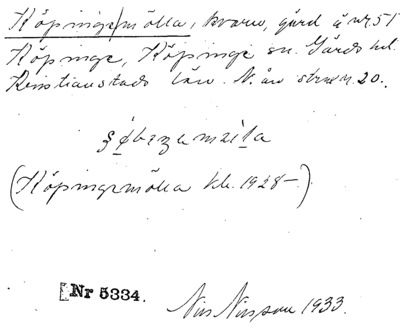 Köpinge/mölla, kvarn, gård å nr 51
Köpinge, Köpinge sn. Gärds hd.
Kristianstads län. N. änströmm. 20.
(Köpingemölla kb. 1928–)
Nr 5334.
Nils Nilsson 1933.